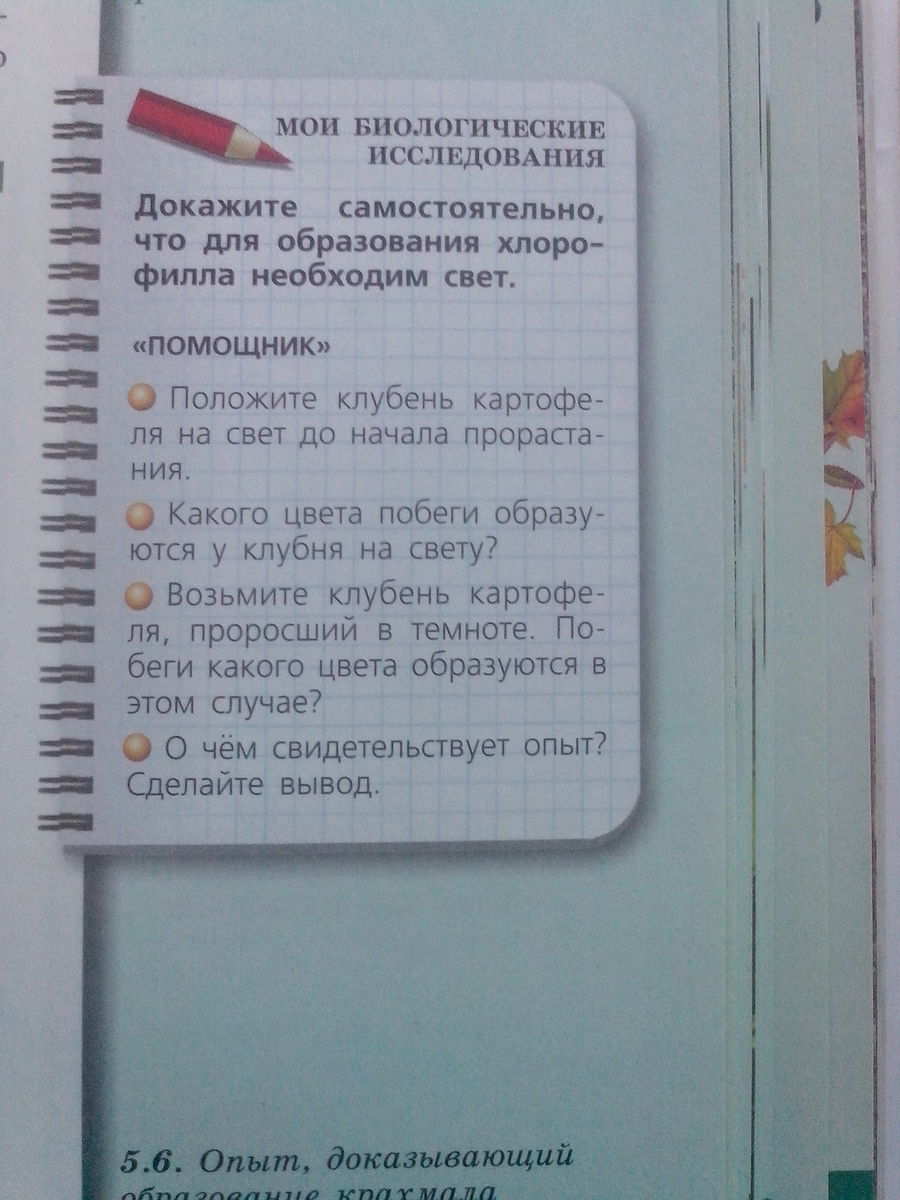 МОИ БИОЛОГИЧЕСКИЕ
ИССЛЕДОВАНИЯ
Докажите самостоятельно,
что для образования хлоро-
филла необходим свет.
«ПОМОЩНИК»
Положите клубень картофе-
ля на свет до начала прораста-
ния.
Какого цвета побеги образу-
ются у клубня на свету?
Возьмите клубень картофе-
ля, проросший в темноте. По-
беги какого цвета образуются в
этом случае?
О чём свидетельствует опыт?
Сделайте вывод.
5.6. Опыт, доказывающий
образование крахмала